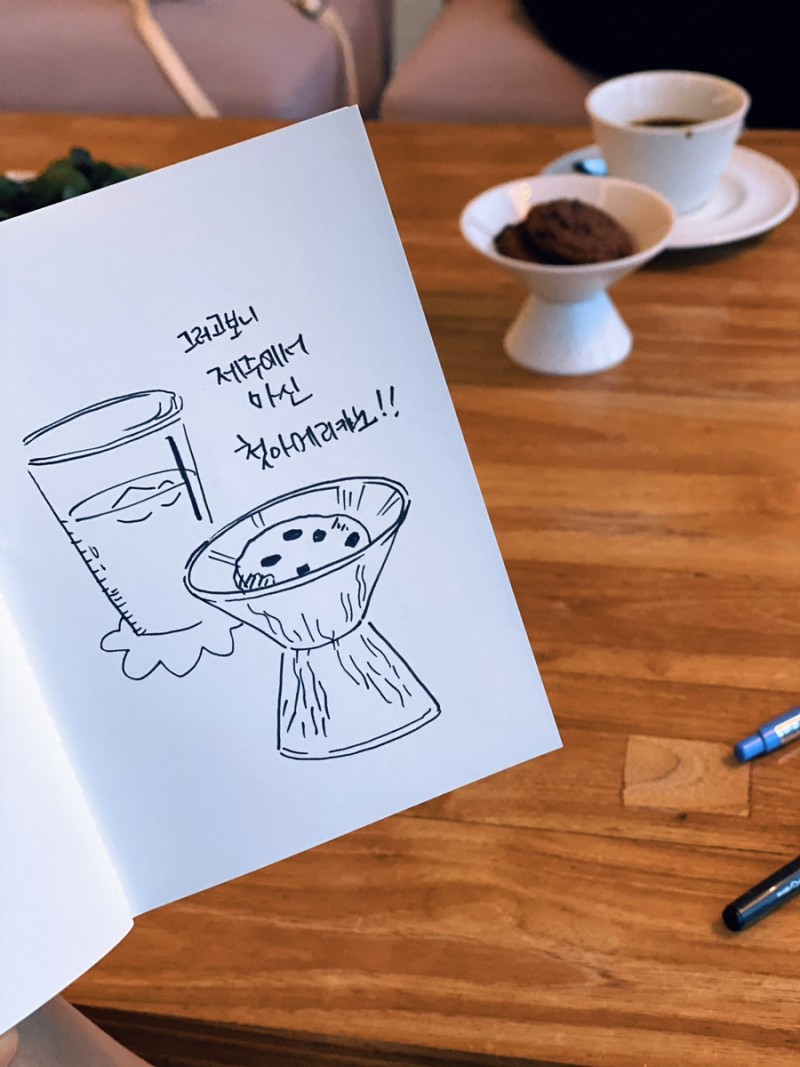 그러고보니
제주에서
마신
첫아메리카노!!